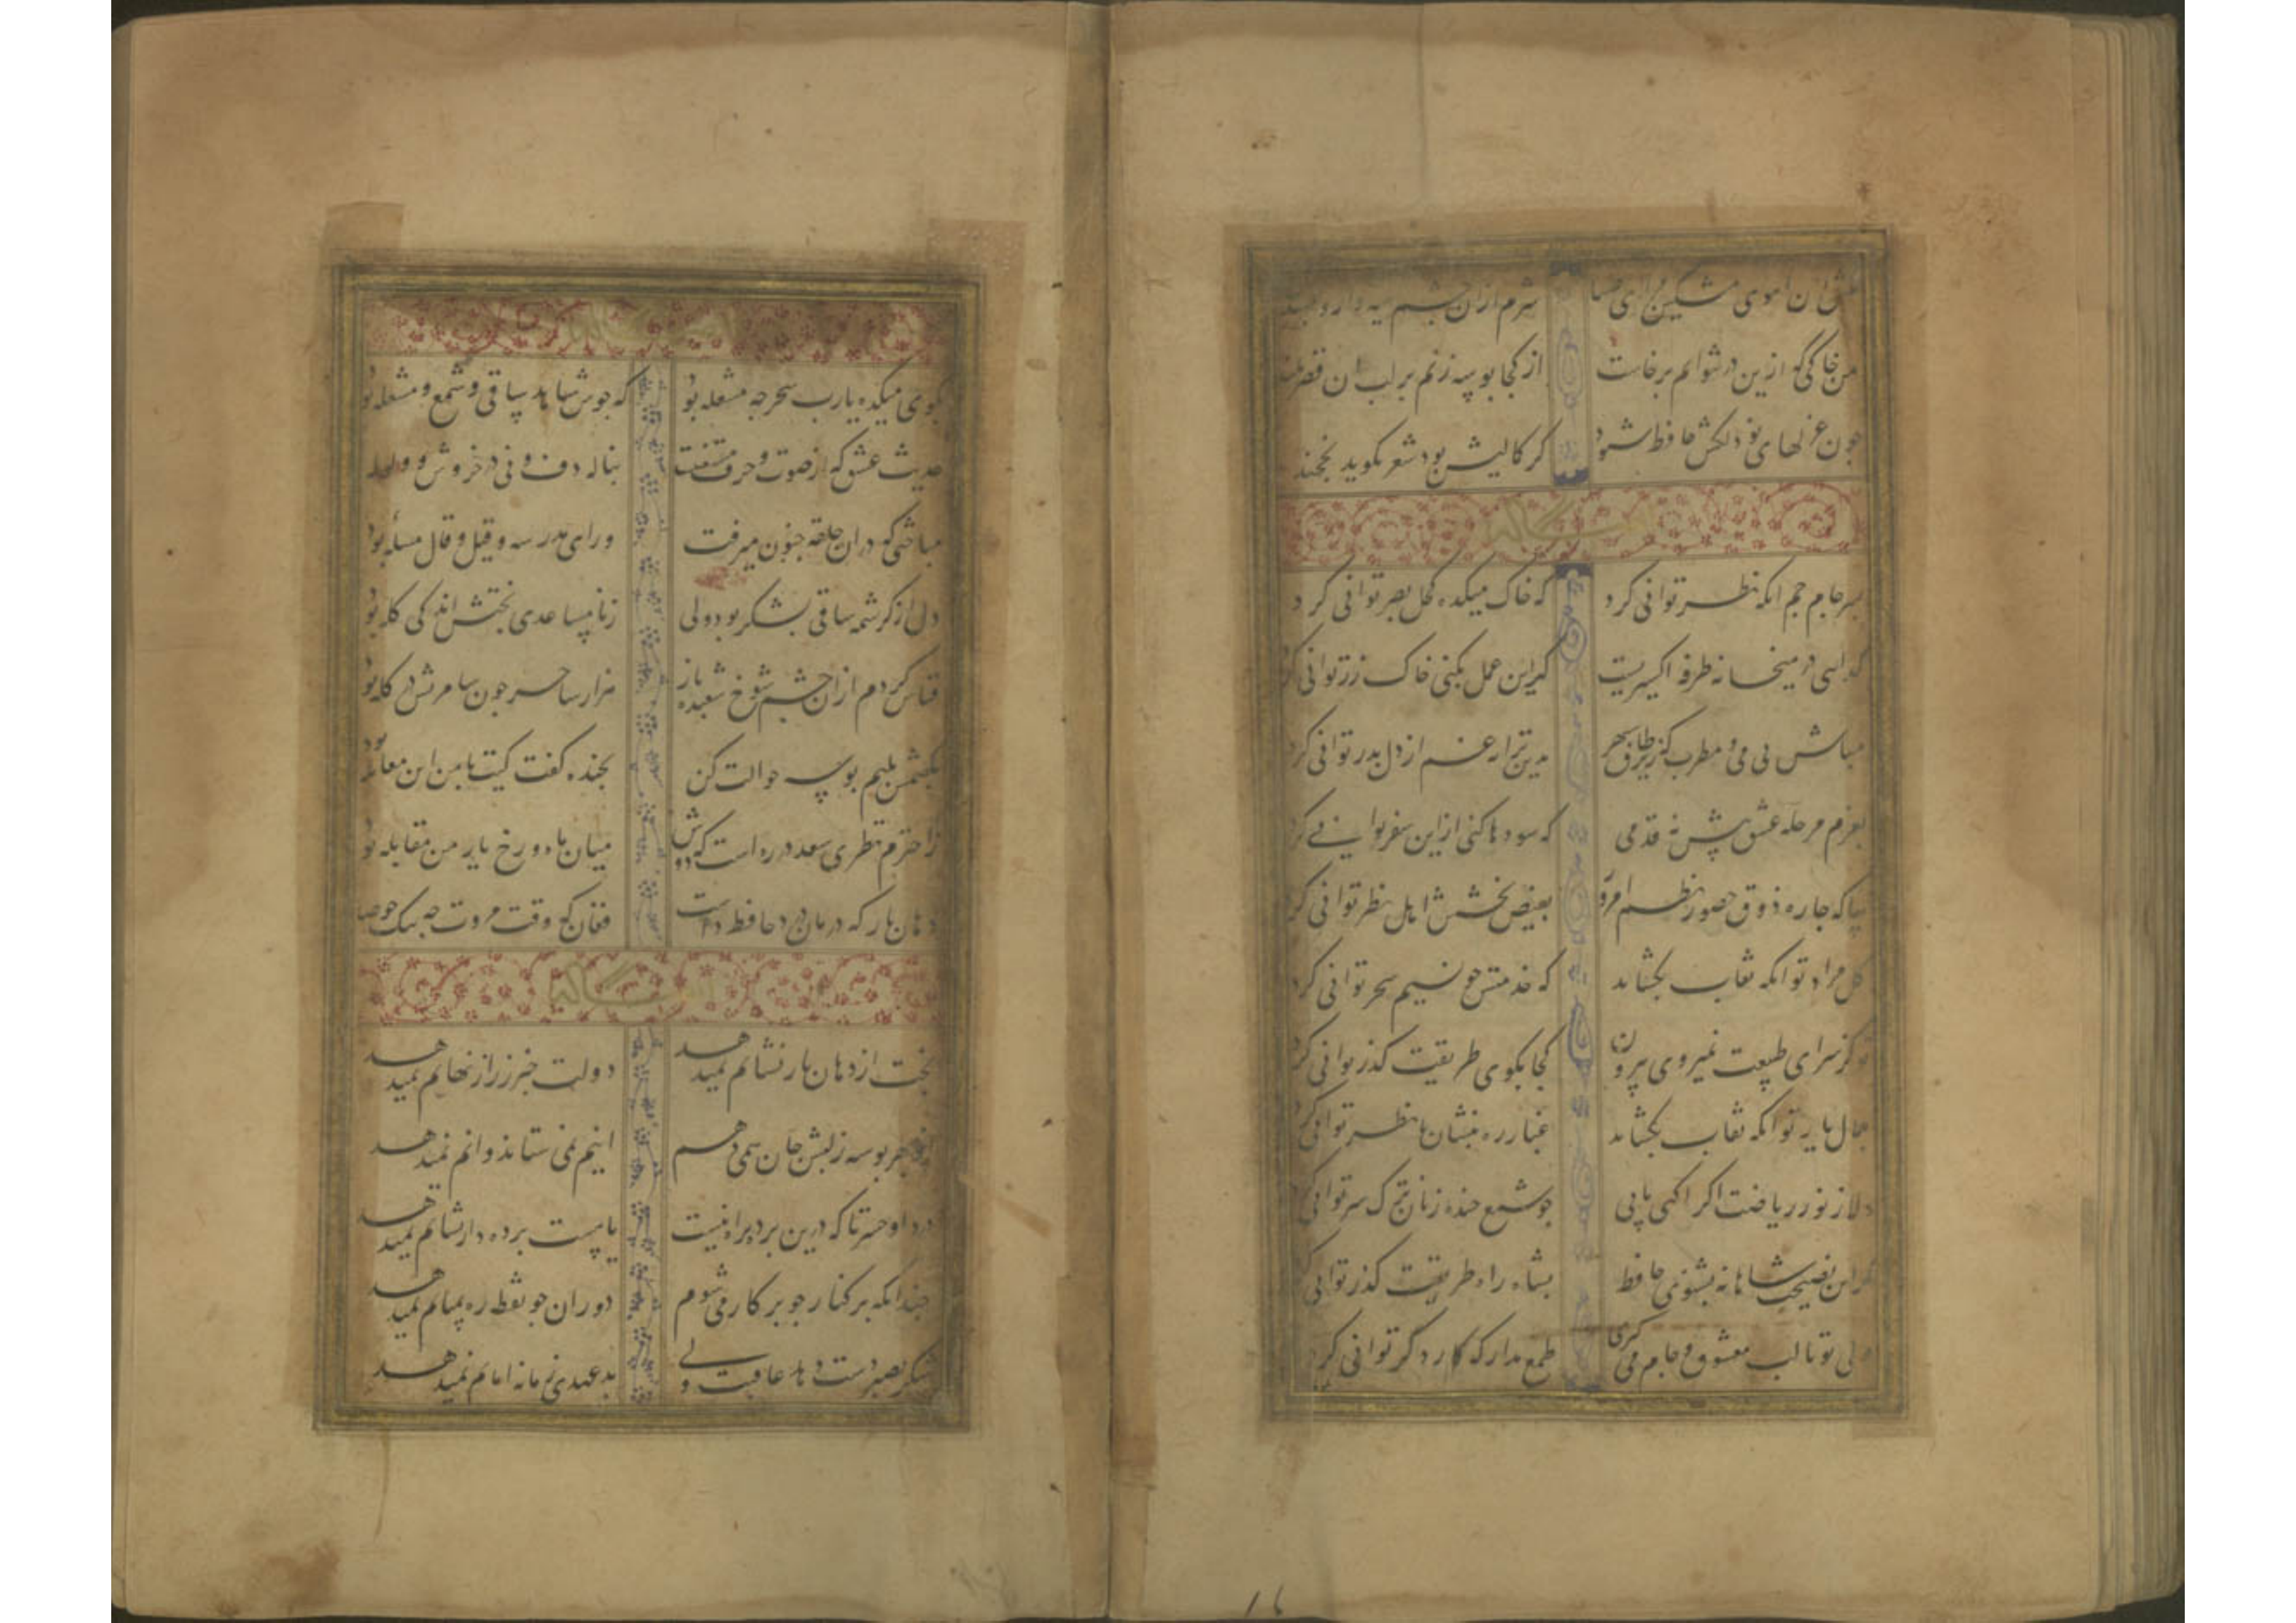 ان آهوی مشکین ای صبا شرم ازان چشم سیه دار و مبند
من خاکی که ازین در نتوانم برخاست از کجا بوسه زنم بر لب ان قصر بلند
جون غزلهای تو دلکش حافظ شنود کر کمالیش بود شعر نکوید بخجند
بسر جام جم انکه نظر توانی کرد که خاک میکده کحل بصر توانی کرد
کدایی در میخانه طرفه اکسیریست کر این عمل بکنی خاک زر توانی کرد
مباش بی می و مطرب که زیر طاق سپهر بدین ترانه غم از دل بدر توانی کرد
بعزم مرحله عشق پیش نه قدمی که سودها کنی ار این سفر توانی کرد
بیا که جاره ذوق حضور و نظم امور بفیض بخشش اهل نظر توانی کرد
کل مراد تو انکه نقاب بکشاید که خدمتش جو نسیم سحر توانی کرد
تو کز سرای طبیعت نمیروی بیرون کجا بکوی طریقت کذر توانی کرد
جمال یار تو انکه نقاب بکشاید غبار ره بنشان تا نظر توانی کرد
دلا ز نور ریاضت اکر اکهی یابی جو شمع خنده زنان ترک سر توانی کرد
کر این نصیحت شاهانه بشنوی حافظ بشاه راه طریقت کذر توانی کرد
ولی تو تا لب معشوق و جام می کیری طمع مدار که کار دکر توانی کرد
۱۶
بکوی میکده یارب سحر جه مشعله بود که جوش شاهد و ساقی و شمع و مشعله بود
حدیث عشق که از صوت و حرف مستغنیست بناله دف و نی در خروش و ولوله
مباحثی که دران حلقه جنون میرفت ورای مدرسه و قیل و قال مسأله بود
دل از کرشمه ساقی بشکر بود ولی ز نامساعدی بختش اندکی کله بود
قیاس کردم ازان چشم شوخ شعبده باز هزار ساحر جون سامریش در کله بود
بکفتمش بلبم بوسه حوالت کن بخنده کفت کیت با من این معامله بود
ز اخترم نظری سعد در ره است که دوش میان ماه و رخ یار من مقابله بود
دهان یار که درمان درد حافظ داشت فغان که وقت مروت جه تنک حوصله
بخت از دهان یار نشانم نمیدهد دولت خبر ز راز نهانم نمیدهد
از بهر بوسه ز لبش جان همی دهم اینم نمی ستاند و انم نمیدهد
دردا و حسرتا که درین برده راه نیست یا هست برده دار نشانم نمیدهد
جندانکه بر کنار جو برکار می شوم دوران جو نقطه ره بمیانم نمیدهد
شکر بصبر دست دهد عاقبت ولی بد عهدی زمانه امانم نمیدهد